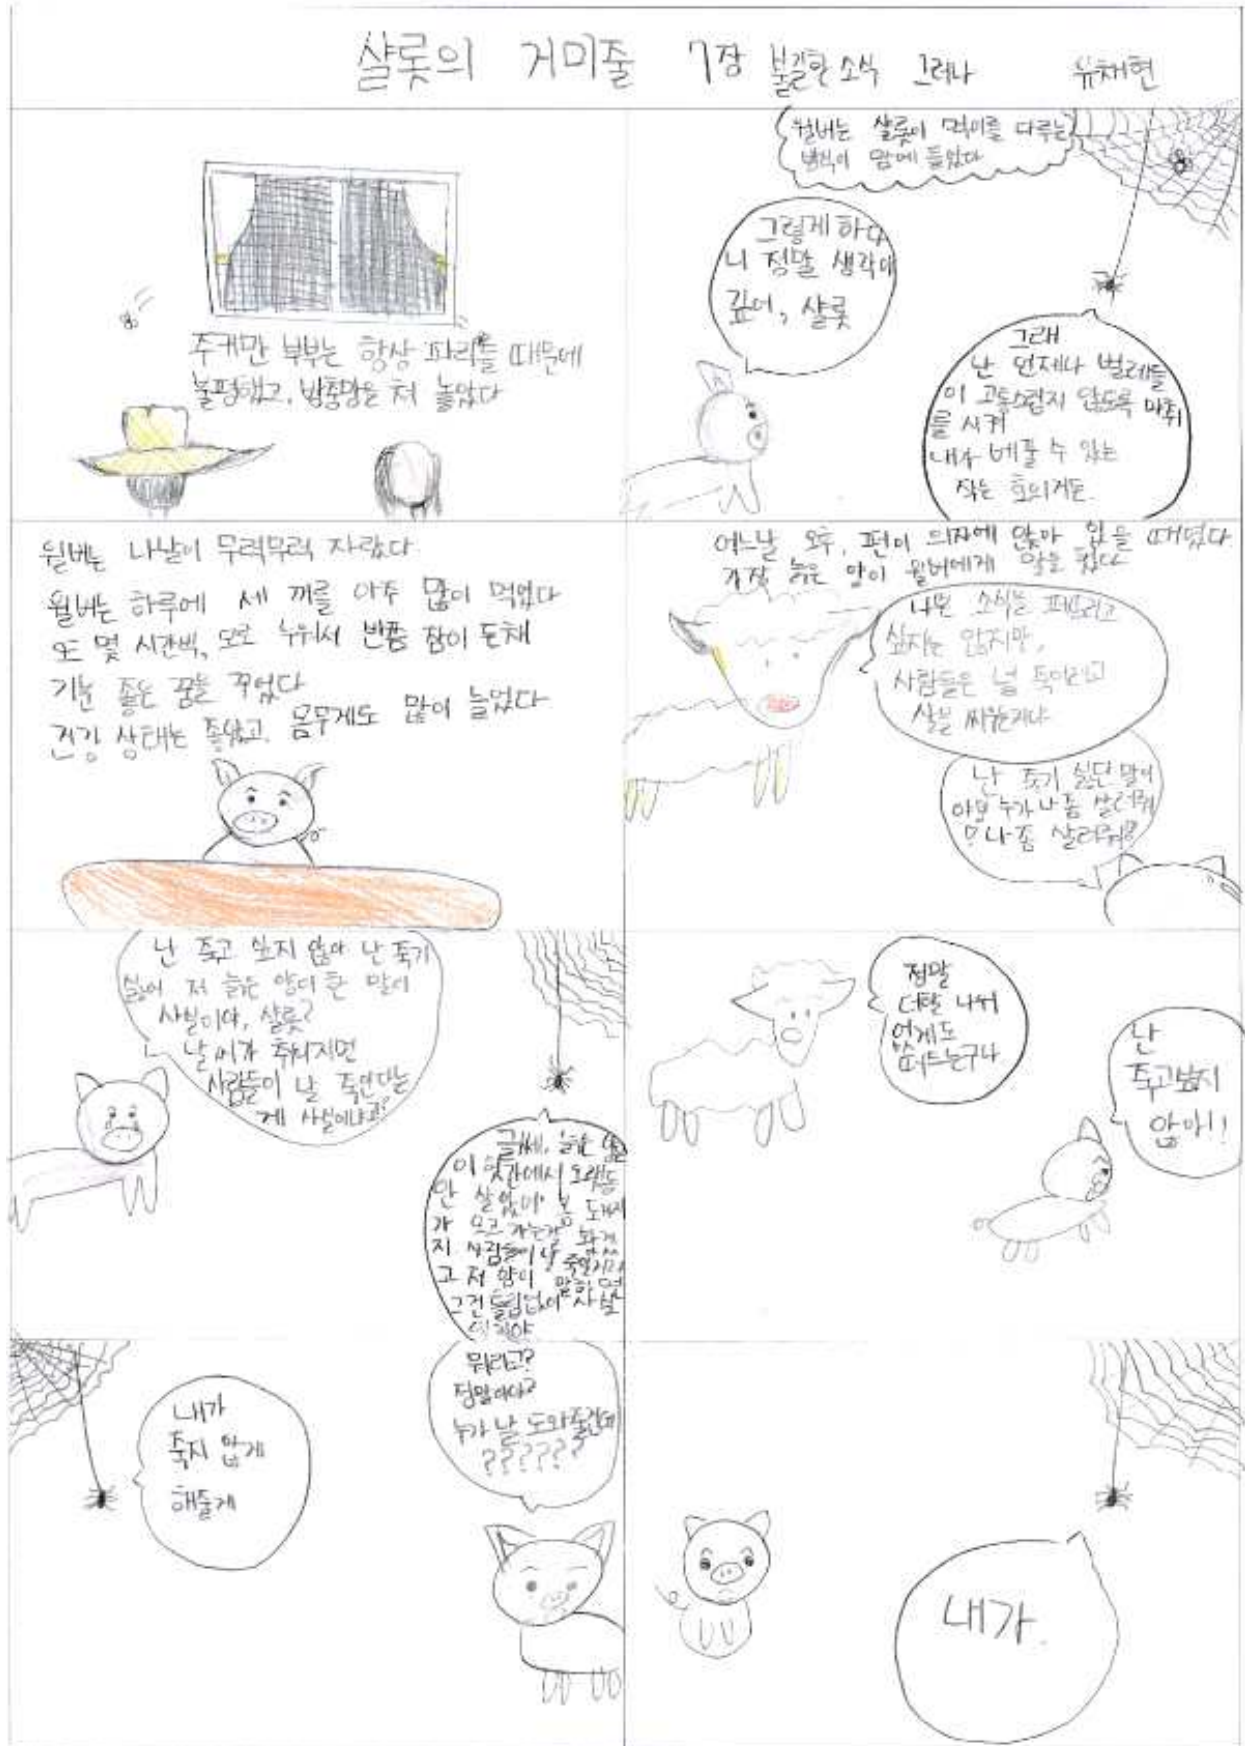 샬롯의 거미줄 7장 불길한 소식 그러나 유채현
주커만 부부는 항상 파리들 때문에
불평했고, 방충망은 쳐 놓았다
윌버는 샬롯이 먹이를 다루는
방식이 맘에 들었다
그렇게 하다
니 정말 생각이
깊어, 샬롯
그래
난 언제나 벌레들
이 고통스럽지 않도록 마취
를 시켜
내가 베풀 수 있는
작은 호의거든.
윌버는 나날이 무럭무럭 자랐다.
윌버는 하루에 세 끼를 아주 많이 먹었다
또 몇 시간씩, 모로 누워서 반쯤 잠이 든채
기분 좋은 꿈을 꾸었다
건강 상태는 좋았고, 몸무게도 많이 늘었다
어느날 오후, 펀이 의자에 앉아 있을 때였다.
가장 늙은 양이 윌버에게 말을 걸었다
나쁜 소식을 퍼뜨리고
싶지는 않지만,
사람들은 널 죽이려고
살을 찌우는거야
난 죽기 싫단 말이
야 누가 나 좀 살려줘
나 좀 살려줘?
난 죽고 싶지 않아 난 죽기
싫어 저 늙은 양이 한 말이
사실이야, 샬롯?
날씨가 추워지면
사람들이 날 죽인다는
게 사실이냐고?
글쎄, 늙은 양은
이 헛간에서 오랫동
안 살았어 봄 돼지
가 오고 가는걸 봐왔
지 사람들이 널 죽일거라
고 저 양이 말하면
그건 틀림없이 사실
일거야
정말
더럽 나쉬
없게도
떠드는구나
난
죽고싶지
않아!
내가
죽지 않게
해줄게
뭐라고?
정말이야?
누가 날 도와줄건데
??????
내가.